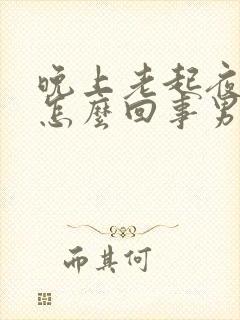 晚上老起夜
怎麼回事男
而其何